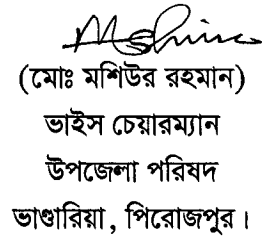 (মোঃ মশিউর রহমান)
ভাইস চেয়ারম্যান
উপজেলা পরিষদ
ভাণ্ডারিয়া, পিরোজপুর।